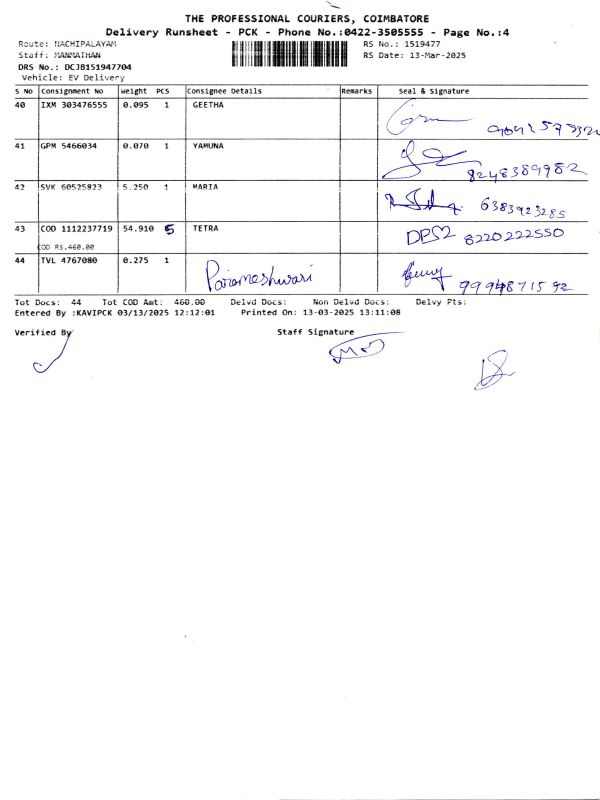 THE PROFESSIONAL COURIERS, COIMBATORE
Delivery Runsheet - PCK - Phone No.:0422-3505555 - Page No.:4
Route: NACHIPALAYAM RS No.: 1519477
Staff: MANMATHAN RS Date: 13-Mar-2025
DRS No.: DCJB151947704
Vehicle: EV Delivery
S No Consignment No Weight PCS Consignee Details Remarks Seal & Signature
40 IXM 303476555 0.095 1 GEETHA
41 GPM 5466034 0.070 1 YAMUNA
8248389982
42 SVK 60525823 5.250 1 MARIA
6383923285
43 COD 1112237719 54.910 5 TETRA
8220222550
COD RS.460.00
44 TVL 4767080 0.275 1 Parameshwari
9994871592
Tot Docs: 44 Tot COD Amt: 460.00 Delvd Docs: Non Delvd Docs: Delvy Pts:
Entered By :KAVIPCK 03/13/2025 12:12:01 Printed On: 13-03-2025 13:11:08
Verified By Staff Signature